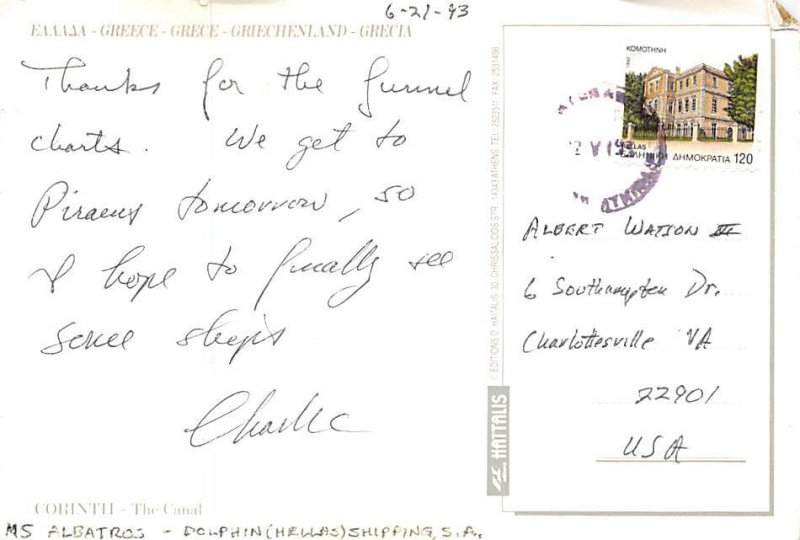 6-21-93
ΕΛΛΑΔΑ - GREECE - GRECE - GRIECHENLAND - GRECIA
Thanks for the funnel
charts. We get to
Piraeus tomorrow, so
I hope to finally see
some ships
Charlie
CORINTH - The Canal
MS ALBATROS - DOLPHIN(HELLAS)SHIPPING, S.A.
HAITALIS
ΚΟΜΟΤΗΝΗ
HELLAS
ΕΛΛΗΝΙΚΗ ΔΗΜΟΚΡΑΤΙΑ 120
ALBERT WATSON III
6 Southampton Dr.
Charlottesville VA
22901
USA